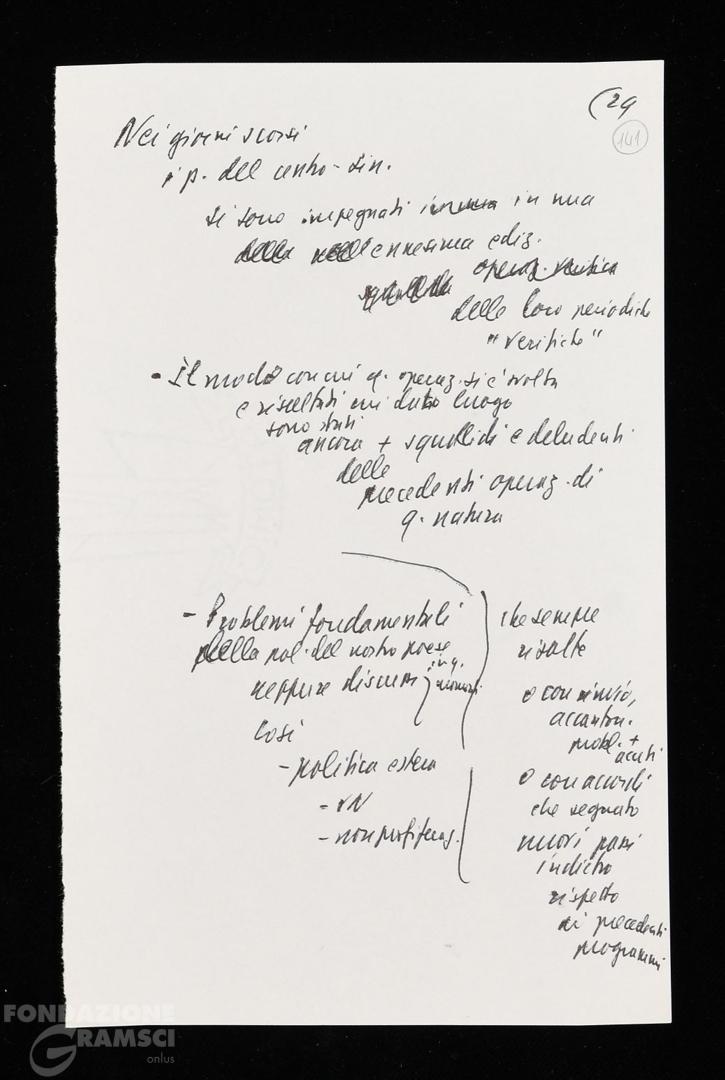 (29
141
Nei giorni scorsi
i p. del centro-sin.
si sono impegnati in una
ennesima ediz.
operaz. verifica
delle loro periodiche
"verifiche"
• Il modo con cui q. operaz. si è svolta
e risultati cui dato luogo
sono stati
ancora + squallidi e deludenti
delle
precedenti operaz. di
q. natura
- Problemi fondamentali
della pol. del nostro paese
neppure discussi in q.
Così
- politica estera
- VN
- non prolferaz.
che sempre
risolte
o con rinvio,
accanton.
probl. +
acuti
o con accordi
che segnato
nuovi passi
indietro
rispetto
ai precedenti
programmi
FONDAZIONE
GRAMSCI
onlus